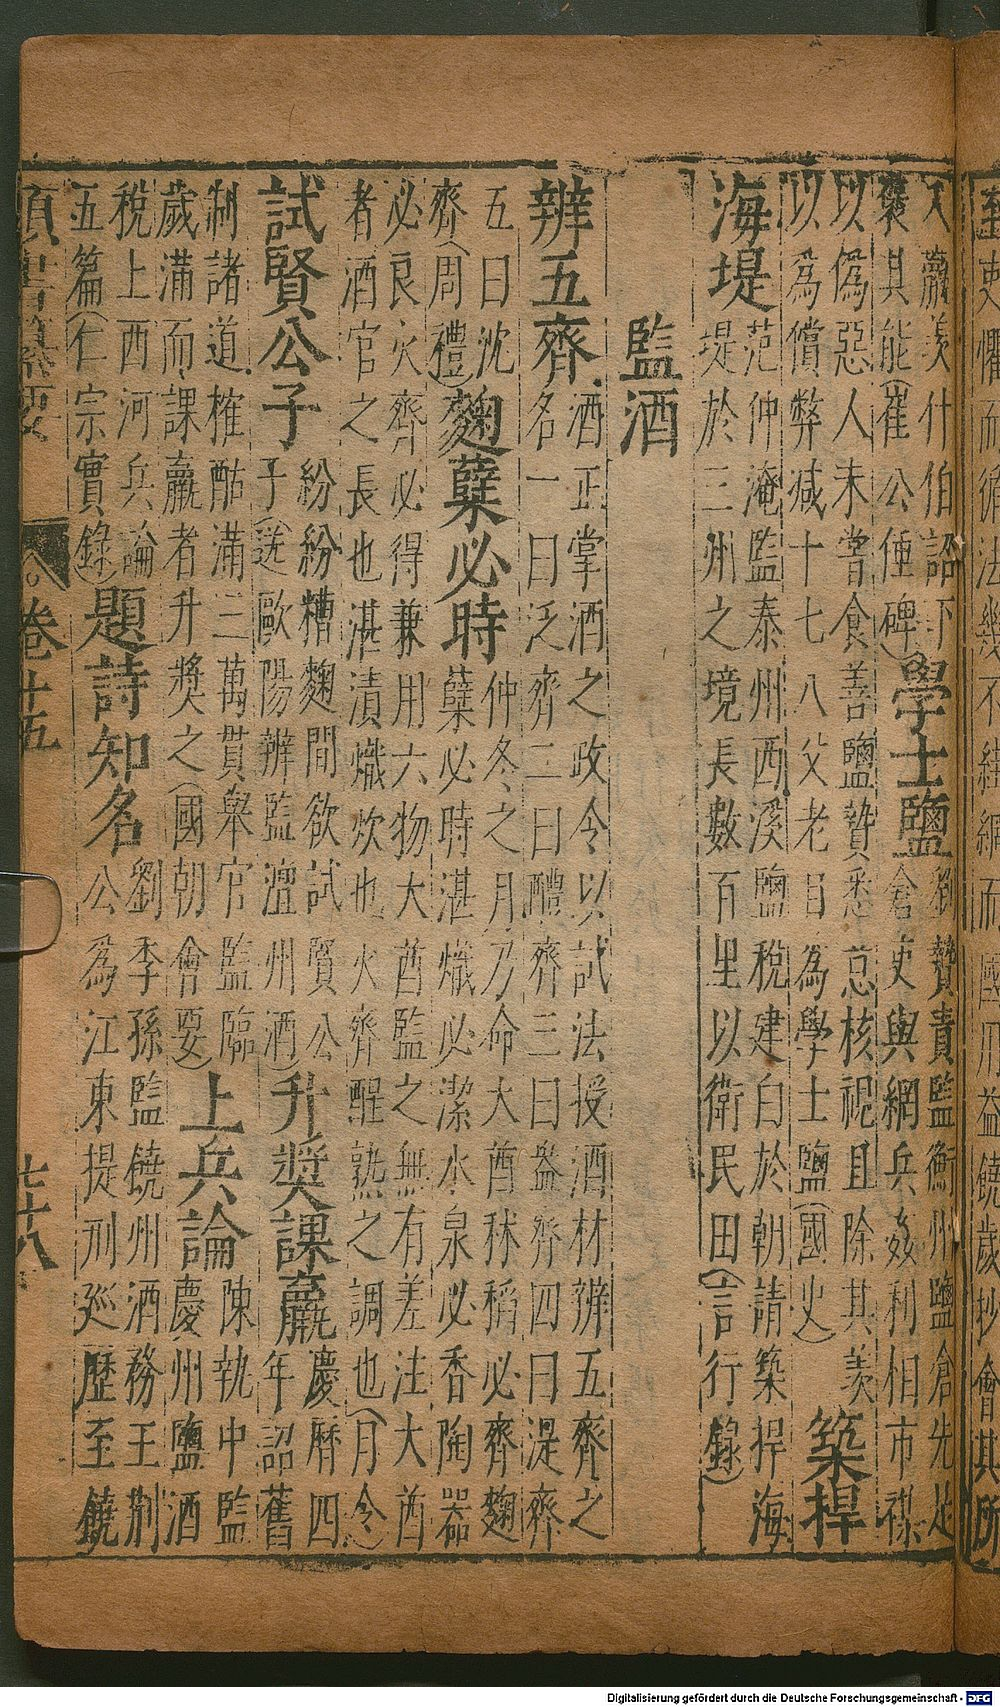 至吏懼而循法幾不絓綱而國用益饒歲抄會其所
入贏羨什伯詔下
褒其能(崔公倕碑)
學士鹽
劉贄責監衡州鹽倉先是
倉吏與綱兵姦利相市襍
以偽惡人未嘗食善鹽贄悉意核視且除其羨
以為償弊减十七八父老目為學士鹽(國史)
築捍
海堤
范仲淹監泰州西溪鹽稅建白於朝請築捍海
堤於三州之境長數百里以衛民田(言行錄)
監酒
辨五齊
酒正掌酒之政令以試法授酒材辨五齊之
名一曰泛齊二曰醴齊三曰盎齊四曰湜齊
五曰沈
齊(周禮)
麴糵必時
仲冬之月乃命大酋秫稻必齊麴
糵必時湛熾必潔水泉必香陶器
必良火齊必得兼用六物大酋監之無有差注大酋
者酒官之長也湛漬熾炊也火齊醒熟之調也(月令)
試賢公子
紛紛糟麴間欲試賢公
子(送歐陽辨監澶州酒)
升奨課贏
慶曆四
年詔舊
制諸道榷酤滿三萬貫舉官監臨
歲滿而課贏者升奬之(國朝會要)
上兵論
陳執中監
慶州鹽酒
稅上西河兵論
五篇(仁宗實錄)
題詩知名
劉季孫監饒州酒務王荆
公為江東提刑廵歷至饒
類書纂要 卷十五 七十八
Digitalisierung gefördert durch die Deutsche Forschungsgemeinschaft - DFG